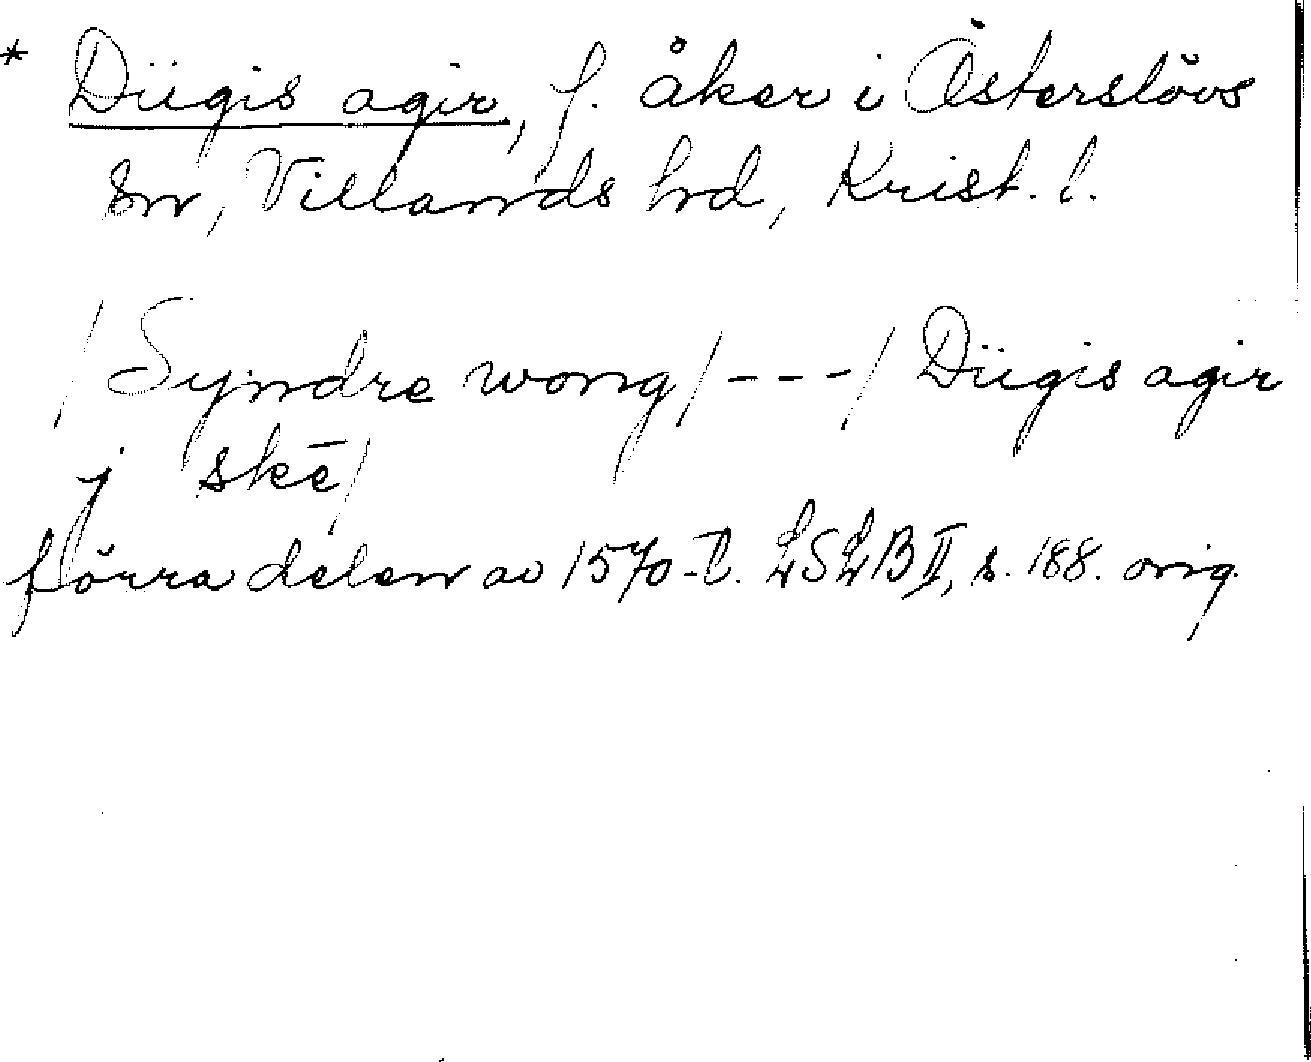 * Diigis agir, f. åker i Österslövs
sn, Villands hd, Krist. l.
/Syndre wong/---/Diigis agir
j skē/
förra delen av 1570-t. LSLB II, s. 188. orig.